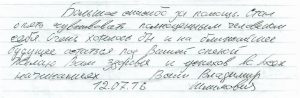 Большое спасибо за помощь. Стал
опять чувствовать полноценным человеком
себя. Очень хотелось бы и на ближайшее
будущее остаться под Вашей опекой
Желаю Вам здоровья и успехов в всех
начинаниях Владимир
12.07.16